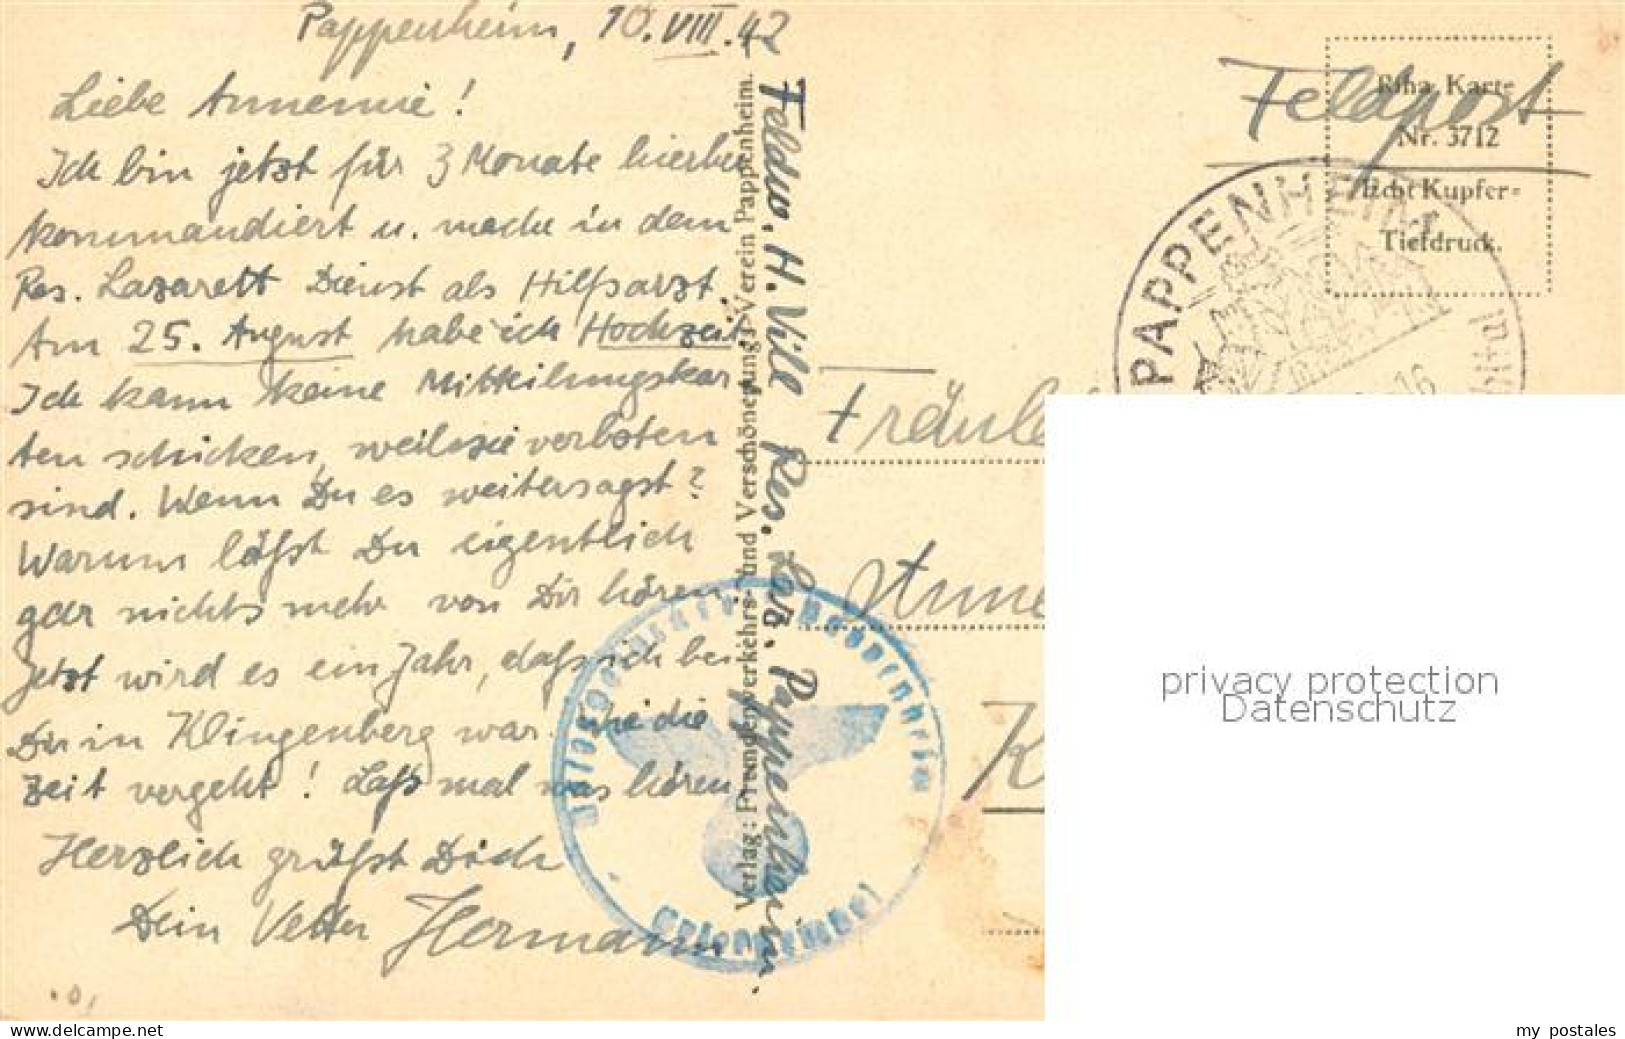 Pappenheim, 10. VIII. 42
Liebe Annemie!
Ich bin jetzt für 3 Monate hierher
kommandiert u. mache in dem
Res. Lazarett Dienst als Hilfsarzt.
Am 25. August habe ich Hochzeit.
Ich kann keine Mitteilungskar
ten schicken, weil sie verboten
sind. Wenn Du es weitersagst?
Warum läßst Du eigentlich
gar nichts mehr von Dir hören.
Jetzt wird es ein Jahr, dass ich bei
Dir in Klingenberg war. Wie die
Zeit vergeht! Laß mal was hören
Herzlich grüßst Dich
Dein Vetter Hermann
Verlag: Fremdenverkehrs- und Verschönerungs-Verein Pappenheim.
Feldw. H. Vill Res. Laz. Pappenheim.
Feldpost
Riha Karte
Nr. 3712
Echt Kupfer-
Tiefdruck.
PAPPENHEIM
Fräule
Anne
K
privacy protection
Datenschutz
www.delcampe.net
my_postales